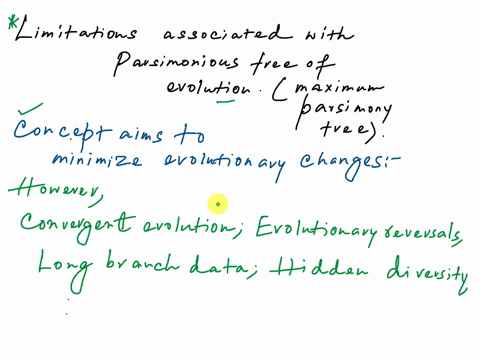 *Limitations associated with
Parsimonious tree of
evolution. (maximum
parsimony
tree).
Concept aims to
minimize evolutionary changes:-
However,
Convergent evolution; Evolutionary reversals,
Long branch data; Hidden diversity